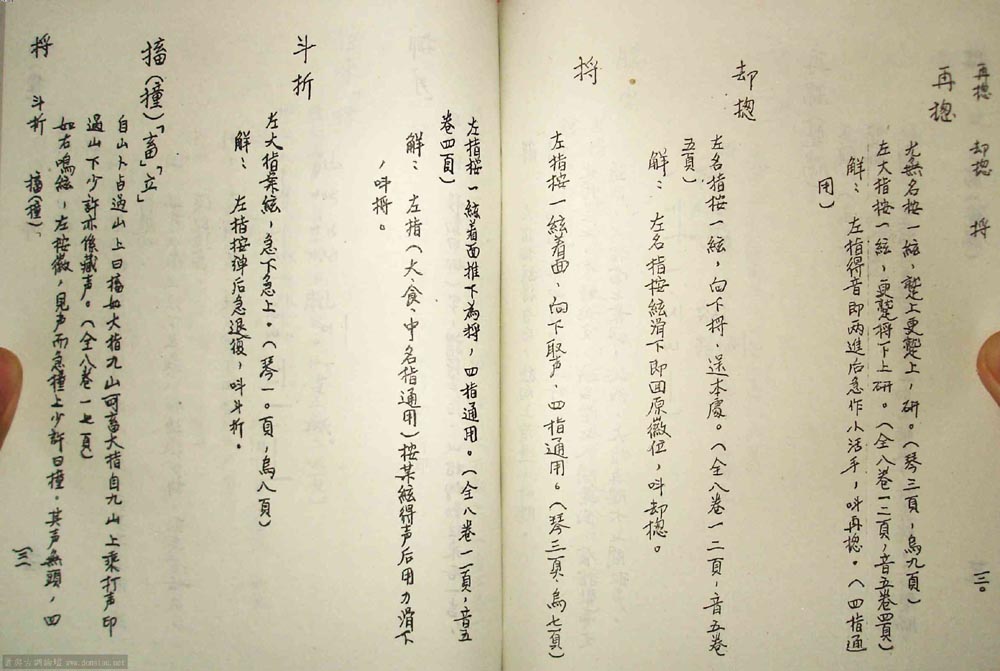 再摠　却摠　将
再摠
左無名按一絃，蹙上更蹙上，研。（琴三頁，烏九頁）
左大指按一絃，更蹙将下上研。（全八卷一二頁，音五卷四頁）
解：左指得音即两進后急作小活手，叫再摠。（四指通
用）
却摠
左名指按一絃，向下捋，送本處。（全八卷一二頁，音五卷
五頁）
解：左名指按絃滑下即回原徽位，叫却摠。
捋
左指按一絃着面、向下取声、四指通用。（琴三頁、烏七頁）
左指按一絃着面推下為捋，四指通用。（全八卷一一頁，音五
卷四頁）
解：左指（大、食、中名指通用）按某絃得声后用力滑下
，叫捋。
斗折
左大指案絃，急下急上。（琴一。頁，烏八頁）
解：左指按弹后急退復，叫斗折。
搐（撞）「畜」「立」
自山卜占過山上曰搐如大指九山可畜大指自九山上乘打声印
過山下少許亦係藏声。（全八卷一七頁）
如右鳴絃，左按徽，見声而急撞上少許曰撞。其声無頭，四
捋　斗折　搐（撞）
一三。
（三一